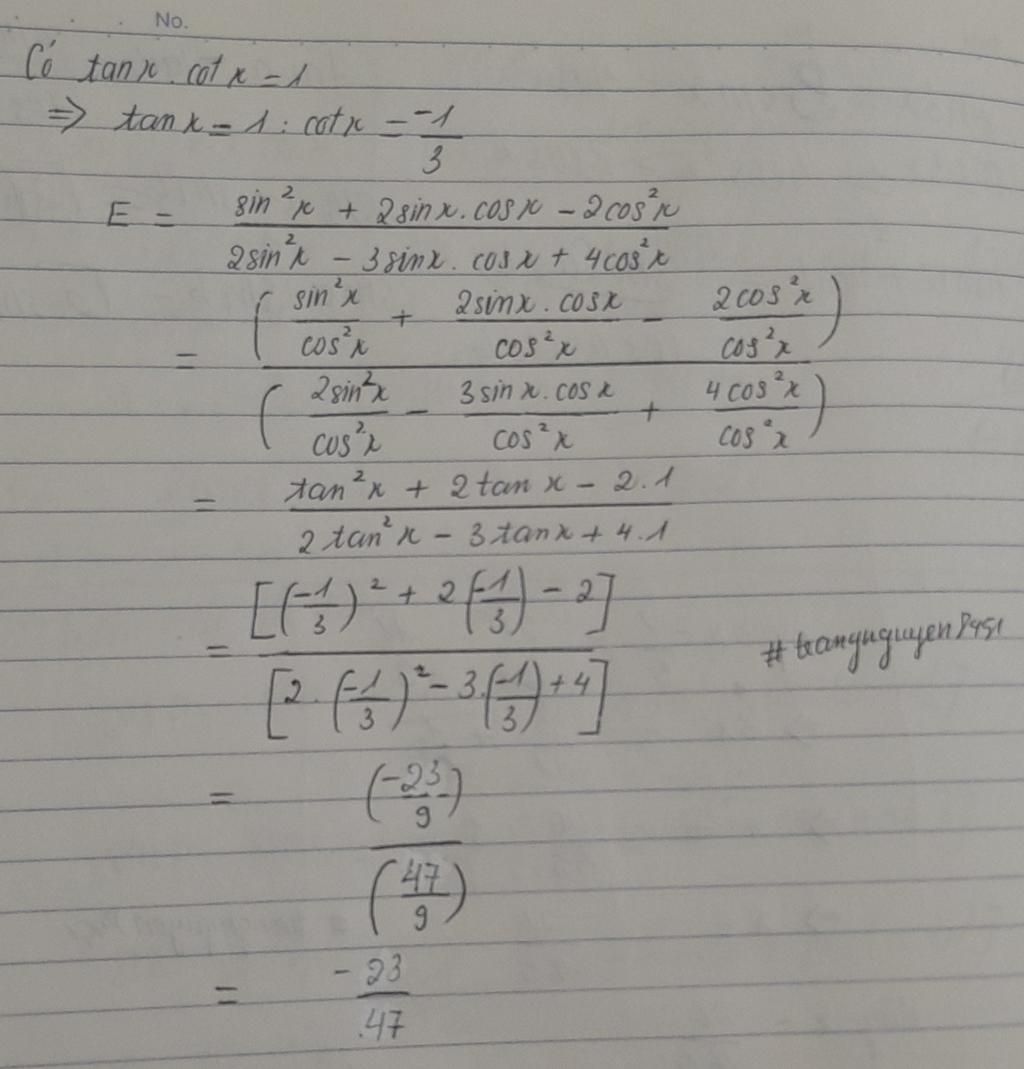 No.
Có tanx.cotx=1
=> tanx=1:cotx=-1/3
E = (sin²x + 2sinx.cosx - 2cos²x)/(2sin²x - 3sinx.cosx + 4cos²x)
= (sin²x/cos²x + 2sinx.cosx/cos²x - 2cos²x/cos²x)/(2sin²x/cos²x - 3sinx.cosx/cos²x + 4cos²x/cos²x)
= (tan²x + 2tanx - 2.1)/(2tan²x - 3tanx + 4.1)
= [(-1/3)² + 2(-1/3) - 2]/[2.(-1/3)² - 3.(-1/3) + 4]
= (-23/9)/(47/9)
= -23/47